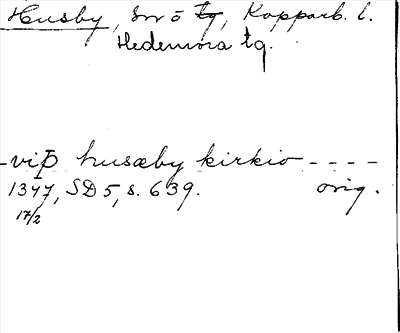 Husby, sn o tg, Kopparb. l.
Hedemora tg.
-viþ husæby kirkio - - - -
1347, SD 5, s. 639. orig.
17/2